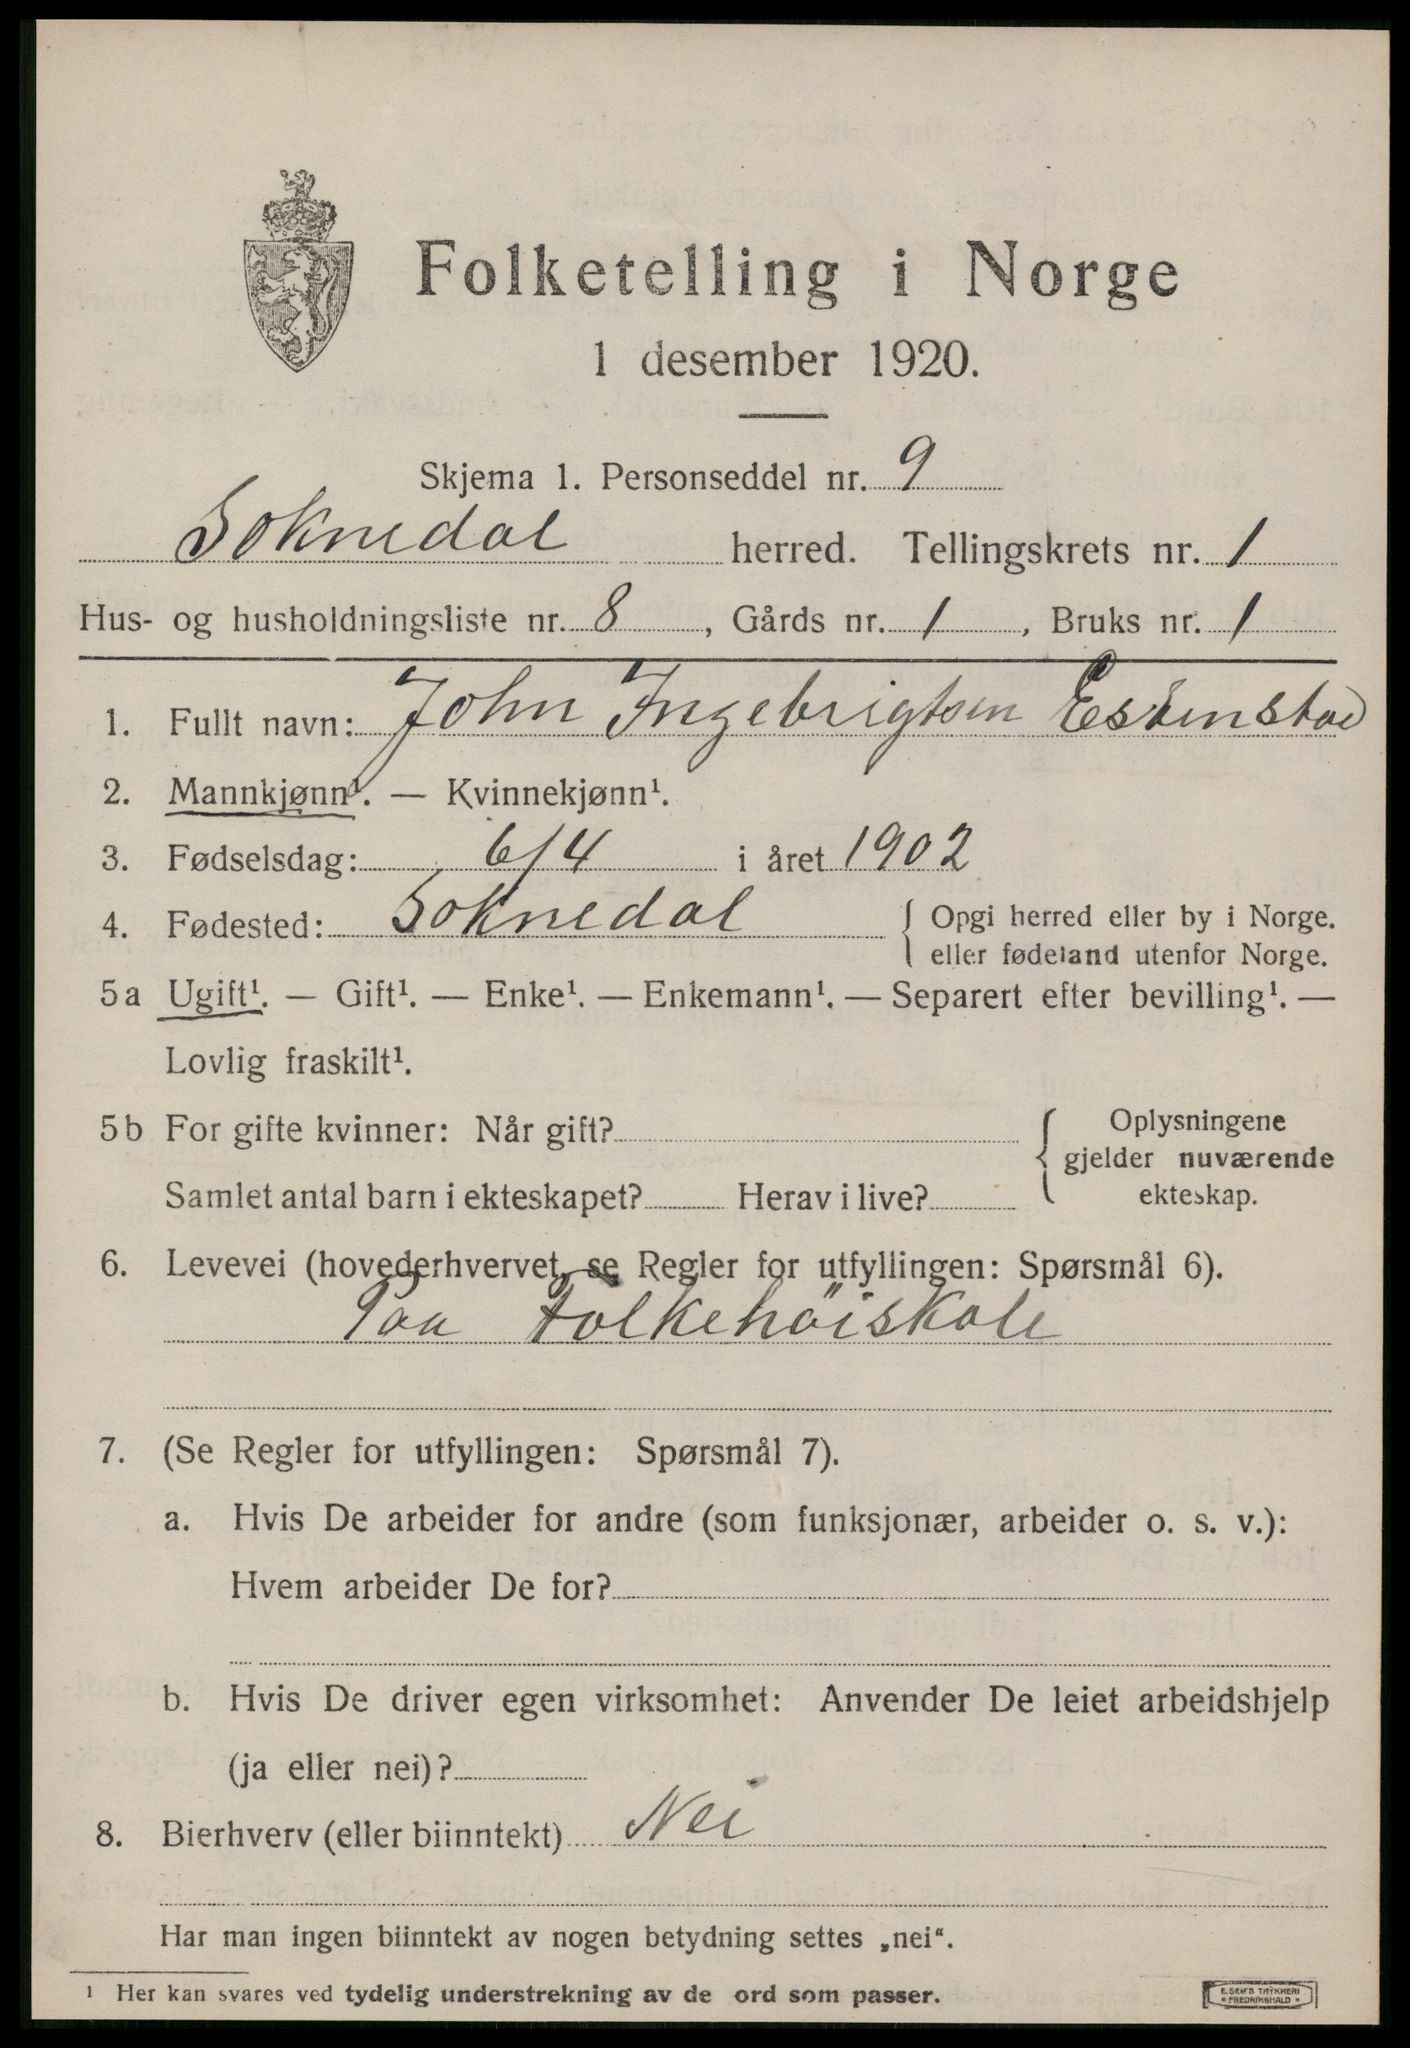 Folketelling i Norge
1 desember 1920.
Skjema 1. Personseddel nr. 9
Soknedal herred. Tellingskrets nr. 1
Hus- og husholdningsliste nr. 8, Gårds nr. 1, Bruks nr. 1
1. Fullt navn: John Ingebrigtsen Estenstad
2. Mannkjønn¹. — Kvinnekjønn¹.
3. Fødselsdag: 6/4 i året 1902
4. Fødested: Soknedal { Opgi herred eller by i Norge.
eller fødeland utenfor Norge.
5a Ugift¹. — Gift¹. — Enke¹. — Enkemann¹. — Separert efter bevilling¹. —
Lovlig fraskilt¹.
5b For gifte kvinner: Når gift? { Oplysningene
gjelder nuværende
Samlet antal barn i ekteskapet? Herav i live? ekteskap.
6. Levevei (hovederhvervet, se Regler for utfyllingen: Spørsmål 6).
Paa Folkehöiskole
7. (Se Regler for utfyllingen: Spørsmål 7).
a. Hvis De arbeider for andre (som funksjonær, arbeider o. s. v.):
Hvem arbeider De for?
b. Hvis De driver egen virksomhet: Anvender De leiet arbeidshjelp
(ja eller nei)?
8. Bierhverv (eller biinntekt) Nei
Har man ingen biinntekt av nogen betydning settes „nei“.
¹ Her kan svares ved tydelig understrekning av de ord som passer.
E. SEM'S TRYKKERI
* FREDRIKSHALD *